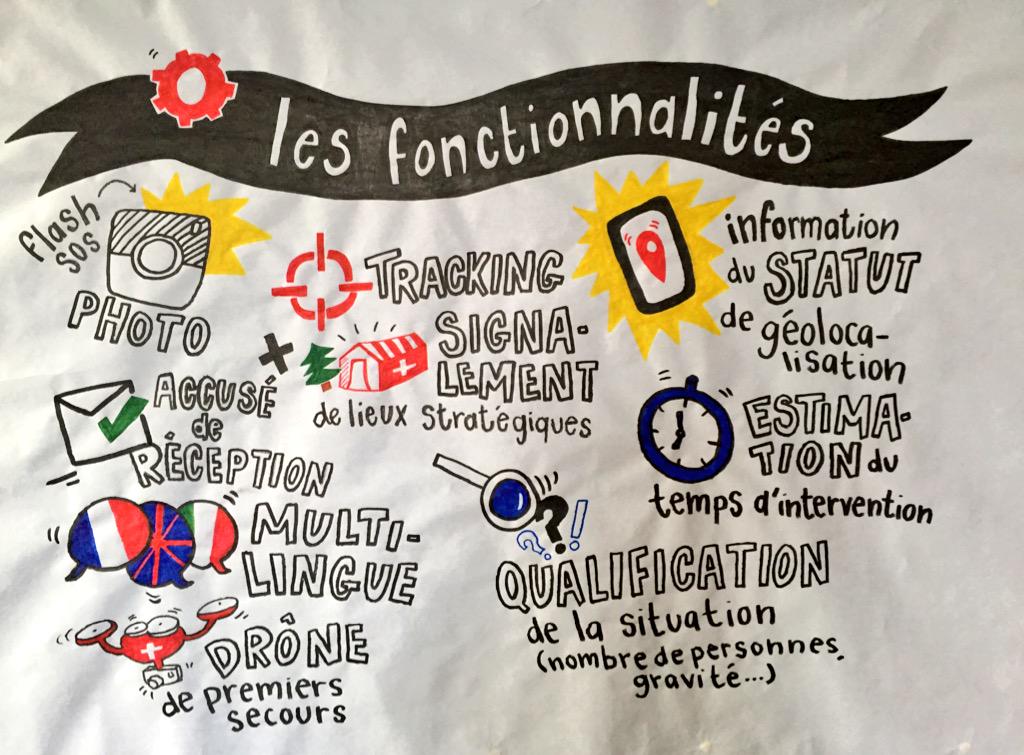 les fonctionnalités
flash
SOS
PHOTO
TRACKING
SIGNA-
LEMENT
de lieux stratégiques
information
du STATUT
de géoloca-
lisation
ACCUSÉ
de
RÉCEPTION
ESTIMA-
TION du
temps d'intervention
MULTI-
LINGUE
QUALIFICATION
de la situation
(nombre de personnes,
gravité...)
DRÔNE
de premiers
secours